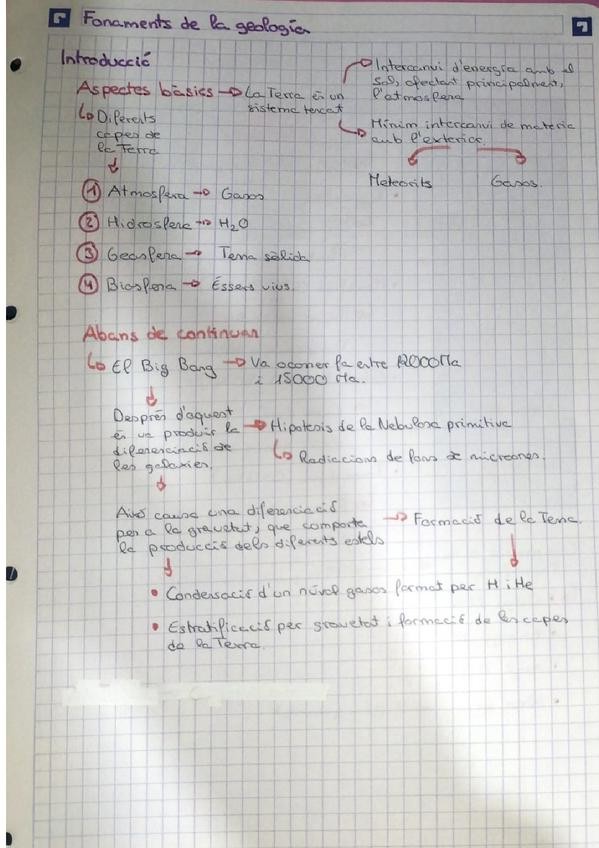 Fonaments de la geología
Introducció
Aspectes bàsics → La Terra és un
sistema tancat
Intercanvi d'energía amb el
Sol, afectant principalment,
l'atmosfera
Mínim intercanvi de materia
amb l'exterior.
Meteorits Gasos.
Diferents
capes de
la Terra
1 Atmosfera → Gasos
2 Hidrosfera → H2O
3 Geosfera → Terra sòlida
4 Biosfera → Éssers vius.
Abans de continuar
El Big Bang → Va ocorrer fa entre 12000 Ma
i 15000 Ma.
Després d'aquest
es va produir la
diferenciació de
les galaxies.
→ Hipotesis de la Nebulosa primitiva
Radiaccions de fons de microones.
Això causa una diferenciació
per a la gravetat, que comporta
la producció dels diferents estels
→ Formació de la Terra.
• Condensació d'un núvol gasos format per H i He
• Estratificació per gravetat i formació de les capes
de la Terra.